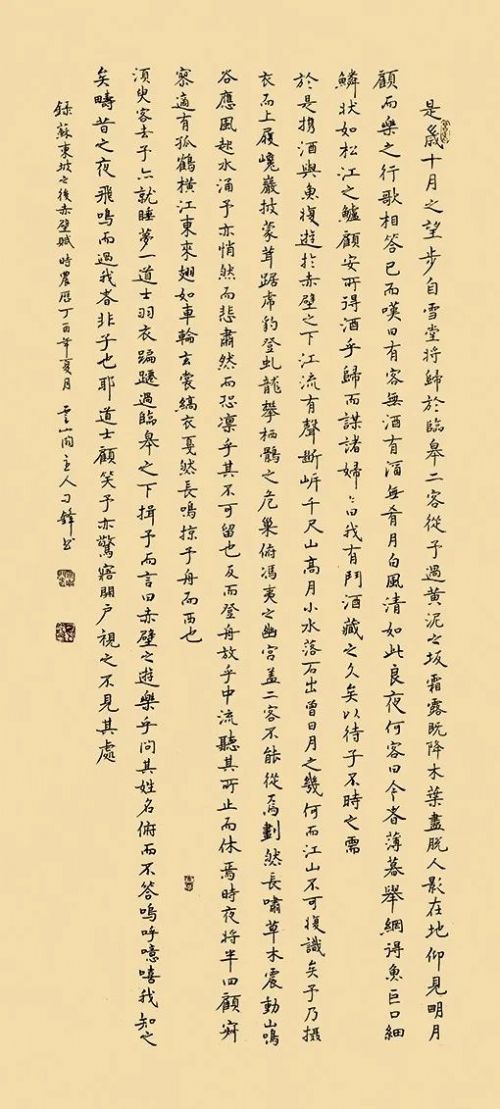 是歲十月之望步自雪堂將歸於臨皋二客從予過黃泥之坂霜露既降木葉盡脫人影在地仰見明月
顧而樂之行歌相答已而嘆曰有客無酒有酒無肴月白風清如此良夜何客曰今者薄暮舉網得魚巨口細
鱗狀如松江之鱸顧安所得酒乎歸而謀諸婦々曰我有鬥酒藏之久矣以待子不時之需
於是攜酒與魚復遊於赤壁之下江流有聲斷岸千尺山高月小水落石出曾日月之幾何而江山不可復識矣予乃攝
衣而上履巉巖披蒙茸踞虎豹登虬龍攀栖鶻之危巢俯馮夷之幽宮蓋二客不能從焉劃然長嘯草木震動山鳴
谷應風起水涌予亦悄然而悲肅然而恐凜乎其不可留也反而登舟放乎中流聽其所止而休焉時夜將半四顧寂
寥適有孤鶴橫江東來翅如車輪玄裳縞衣戛然長鳴掠予舟而西也
須臾客去予亦就睡夢一道士羽衣蹁躚過臨皋之下揖予而言曰赤壁之遊樂乎問其姓名俯而不答嗚呼噫嘻我知之
矣疇昔之夜飛鳴而過我者非子也耶道士顧笑予亦驚寤開戶視之不見其處
錄蘇東坡之後赤壁賦時農曆丁酉年夏月 雲間主人刁鋒書